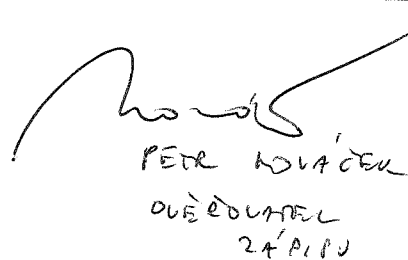 PETR KOVÁČEK
OVĚŘOVATEL
ZÁPISU